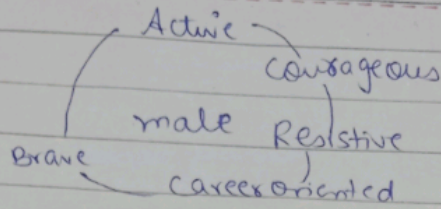 Active
Courageous
male Resistive
Brave
Career oriented